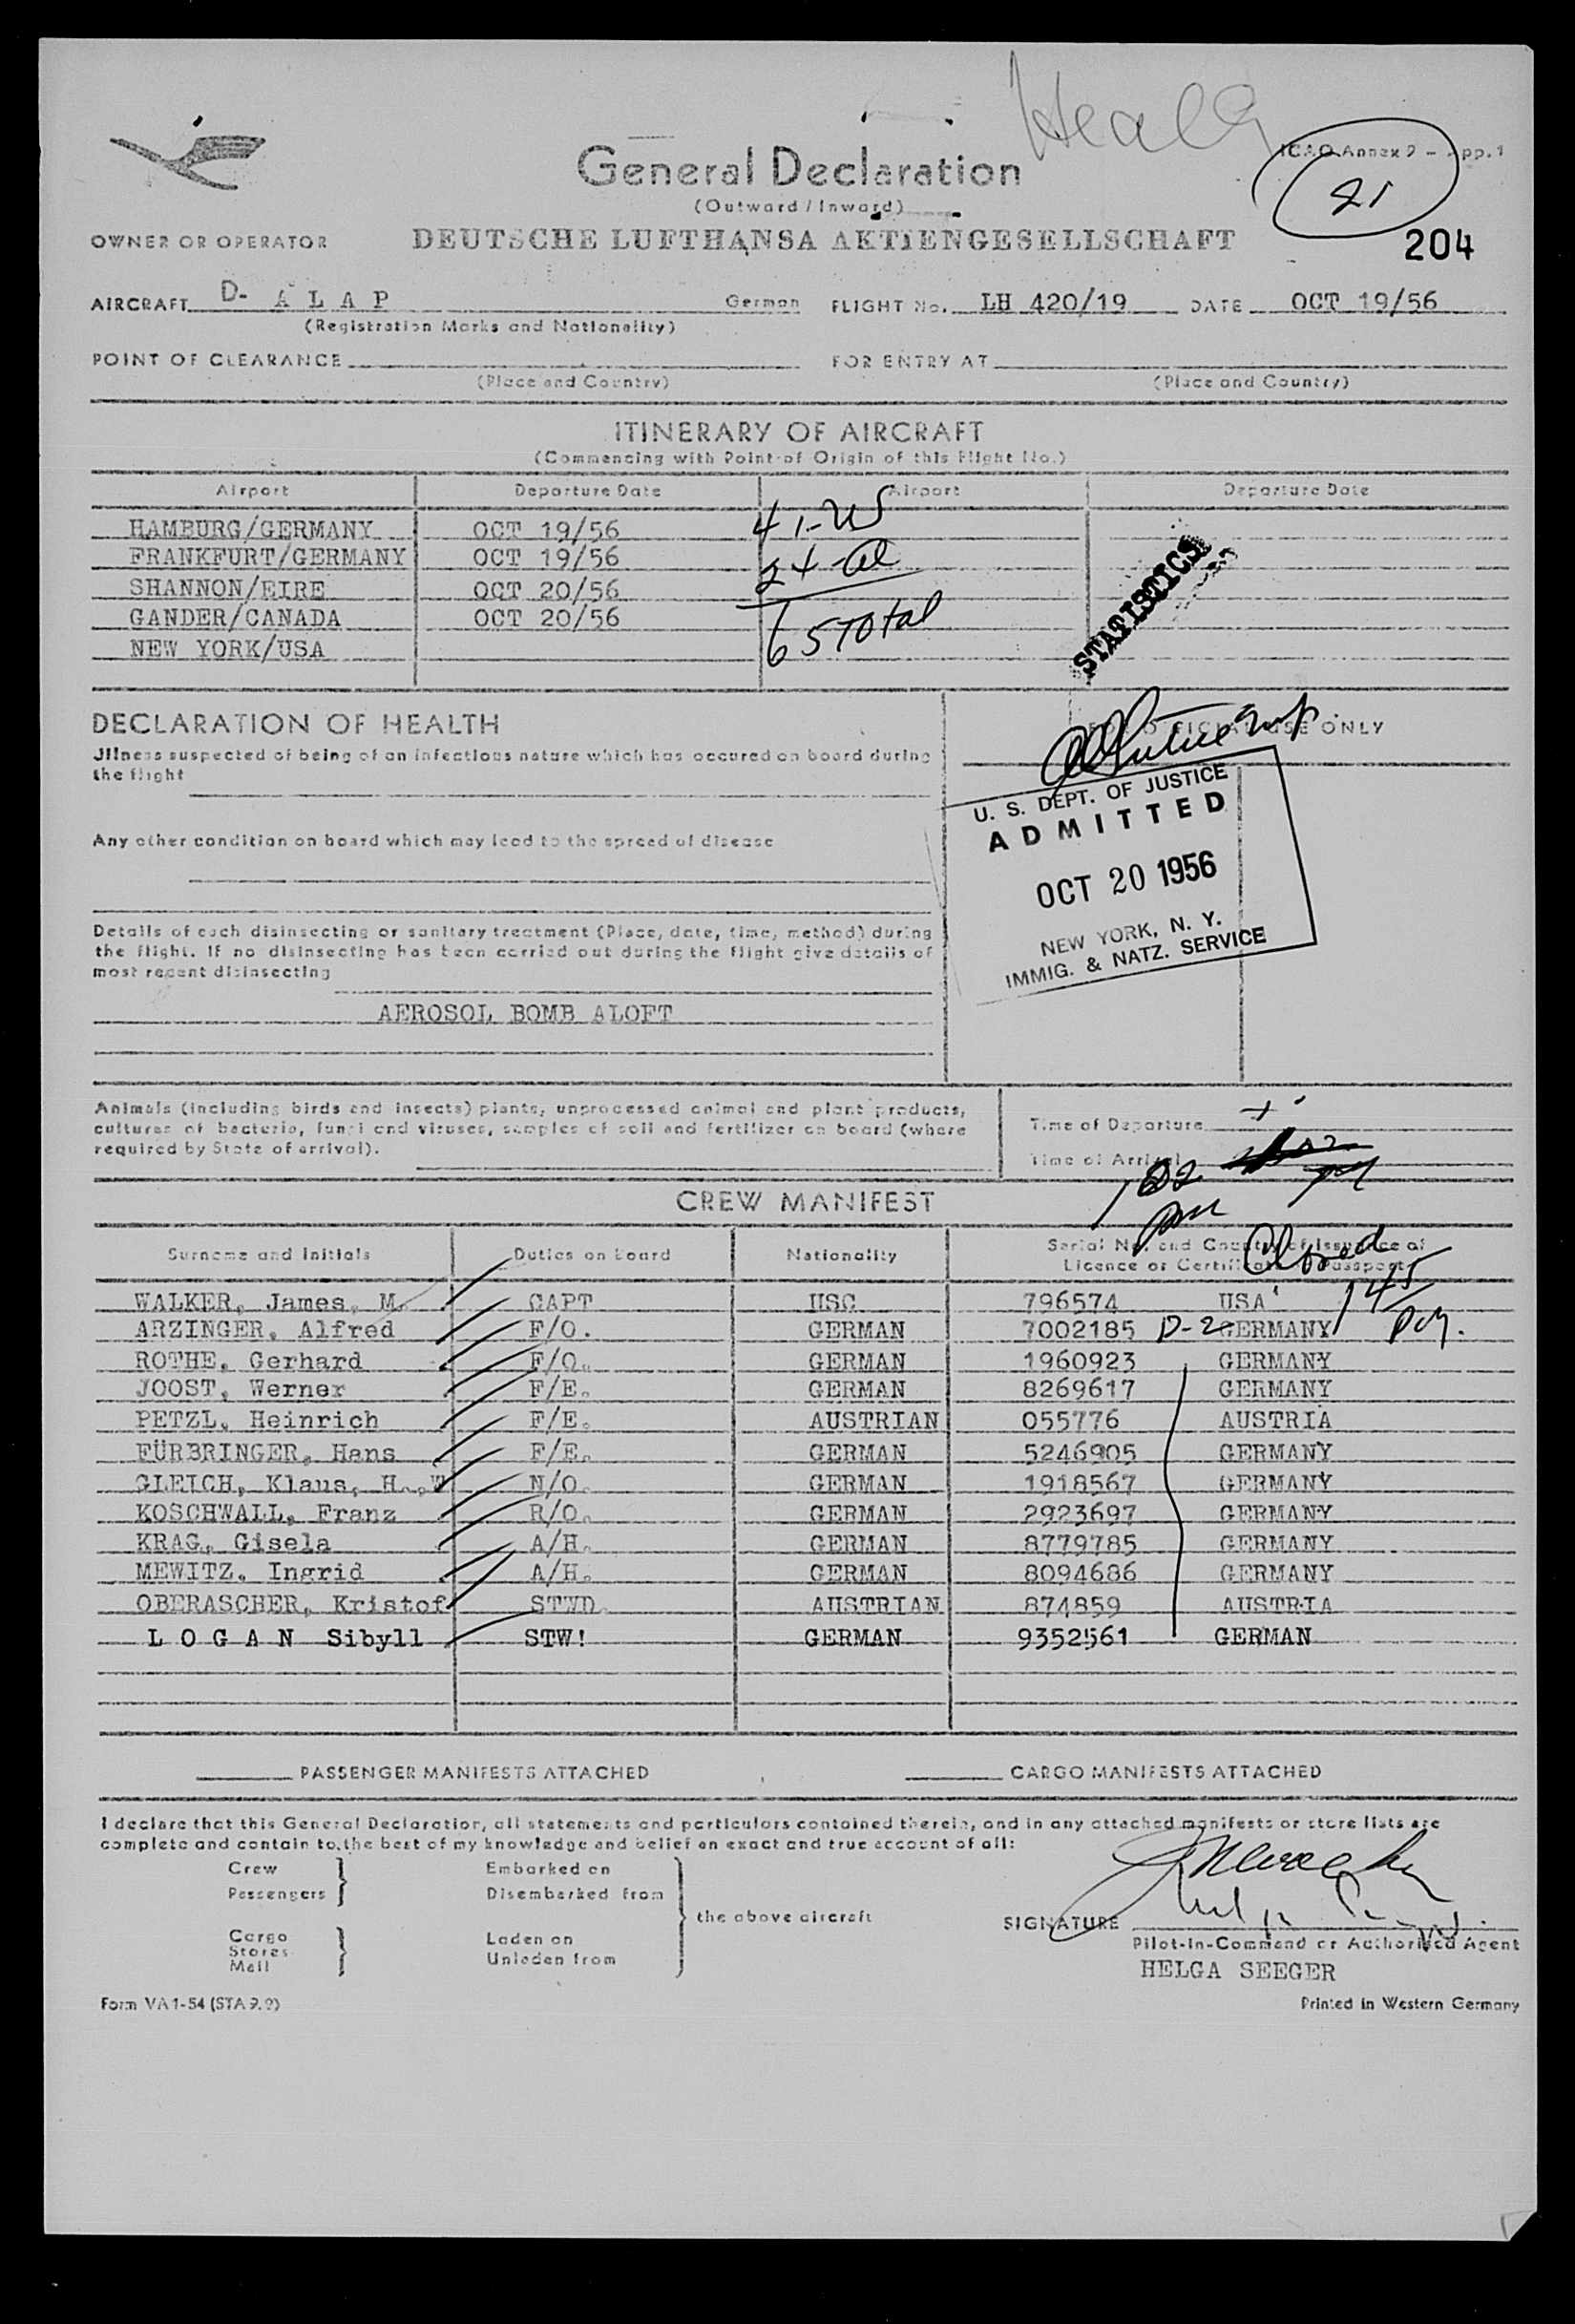 Health
General Declaration
ICAO Annex 9 - App. 1
21
(Outward / Inward)
OWNER OR OPERATOR DEUTSCHE LUFTHANSA AKTIENGESELLSCHAFT
204
AIRCRAFT D- A L A P German FLIGHT No. LH 420/19 DATE OCT 19/56
(Registration Marks and Nationality)
POINT OF CLEARANCE FOR ENTRY AT
(Place and Country) (Place and Country)
ITINERARY OF AIRCRAFT
(Commencing with Point of Origin of this Flight No.)
Airport Departure Date Airport Departure Date
HAMBURG/GERMANY OCT 19/56
FRANKFURT/GERMANY OCT 19/56
SHANNON/EIRE OCT 20/56
GANDER/CANADA OCT 20/56
NEW YORK/USA
41-US
24-al
65 Total
STATISTICS
DECLARATION OF HEALTH
FOR OFFICIAL USE ONLY
Jllness suspected of being of an infectious nature which has occured on board during
the flight
Any other condition on board which may lead to the spread of disease
U. S. DEPT. OF JUSTICE
ADMITTED
OCT 20 1956
NEW YORK, N. Y.
IMMIG. & NATZ. SERVICE
Details of each disinsecting or sanitary treatment (Place, date, time, method) during
the flight. If no disinsecting has been carried out during the flight give details of
most recent disinsecting
AEROSOL BOMB ALOFT
Animals (including birds and insects) plants, unprocessed animal and plant products,
cultures of bacteria, fungi and viruses, samples of soil and fertilizer on board (where
required by State of arrival).
Time of Departure
Time of Arrival
pm
CREW MANIFEST
Closed
145
pm.
Surname and Initials Duties on board Nationality Serial No. and Country of Issuance of
Licence or Certificate Passport
WALKER, James, M. CAPT USC 796574 USA
ARZINGER, Alfred F/O. GERMAN 7002185 D-2 GERMANY
ROTHE, Gerhard F/O. GERMAN 1960923 GERMANY
JOOST, Werner F/E. GERMAN 8269617 GERMANY
PETZL, Heinrich F/E. AUSTRIAN 055776 AUSTRIA
FÜRBRINGER, Hans F/E. GERMAN 5246905 GERMANY
GLEICH, Klaus, H.,W N/O. GERMAN 1918567 GERMANY
KOSCHWALL, Franz R/O. GERMAN 2923697 GERMANY
KRAG, Gisela A/H. GERMAN 8779785 GERMANY
MEWITZ, Ingrid A/H. GERMAN 8094686 GERMANY
OBERASCHER, Kristof STWD. AUSTRIAN 874859 AUSTRIA
L O G A N Sibyll STW! GERMAN 9352561 GERMAN
PASSENGER MANIFESTS ATTACHED CARGO MANIFESTS ATTACHED
I declare that this General Declaration, all statements and particulars contained therein, and in any attached manifests or store lists are
complete and contain to the best of my knowledge and belief an exact and true account of all:
Crew Embarked on
Passengers Disembarked from
the above aircraft
Cargo Laden on
Stores
Mail Unladen from
SIGNATURE
Pilot-in-Command or Authorised Agent
HELGA SEEGER
Form VA 1-54 (STA 9.9) Printed in Western Germany